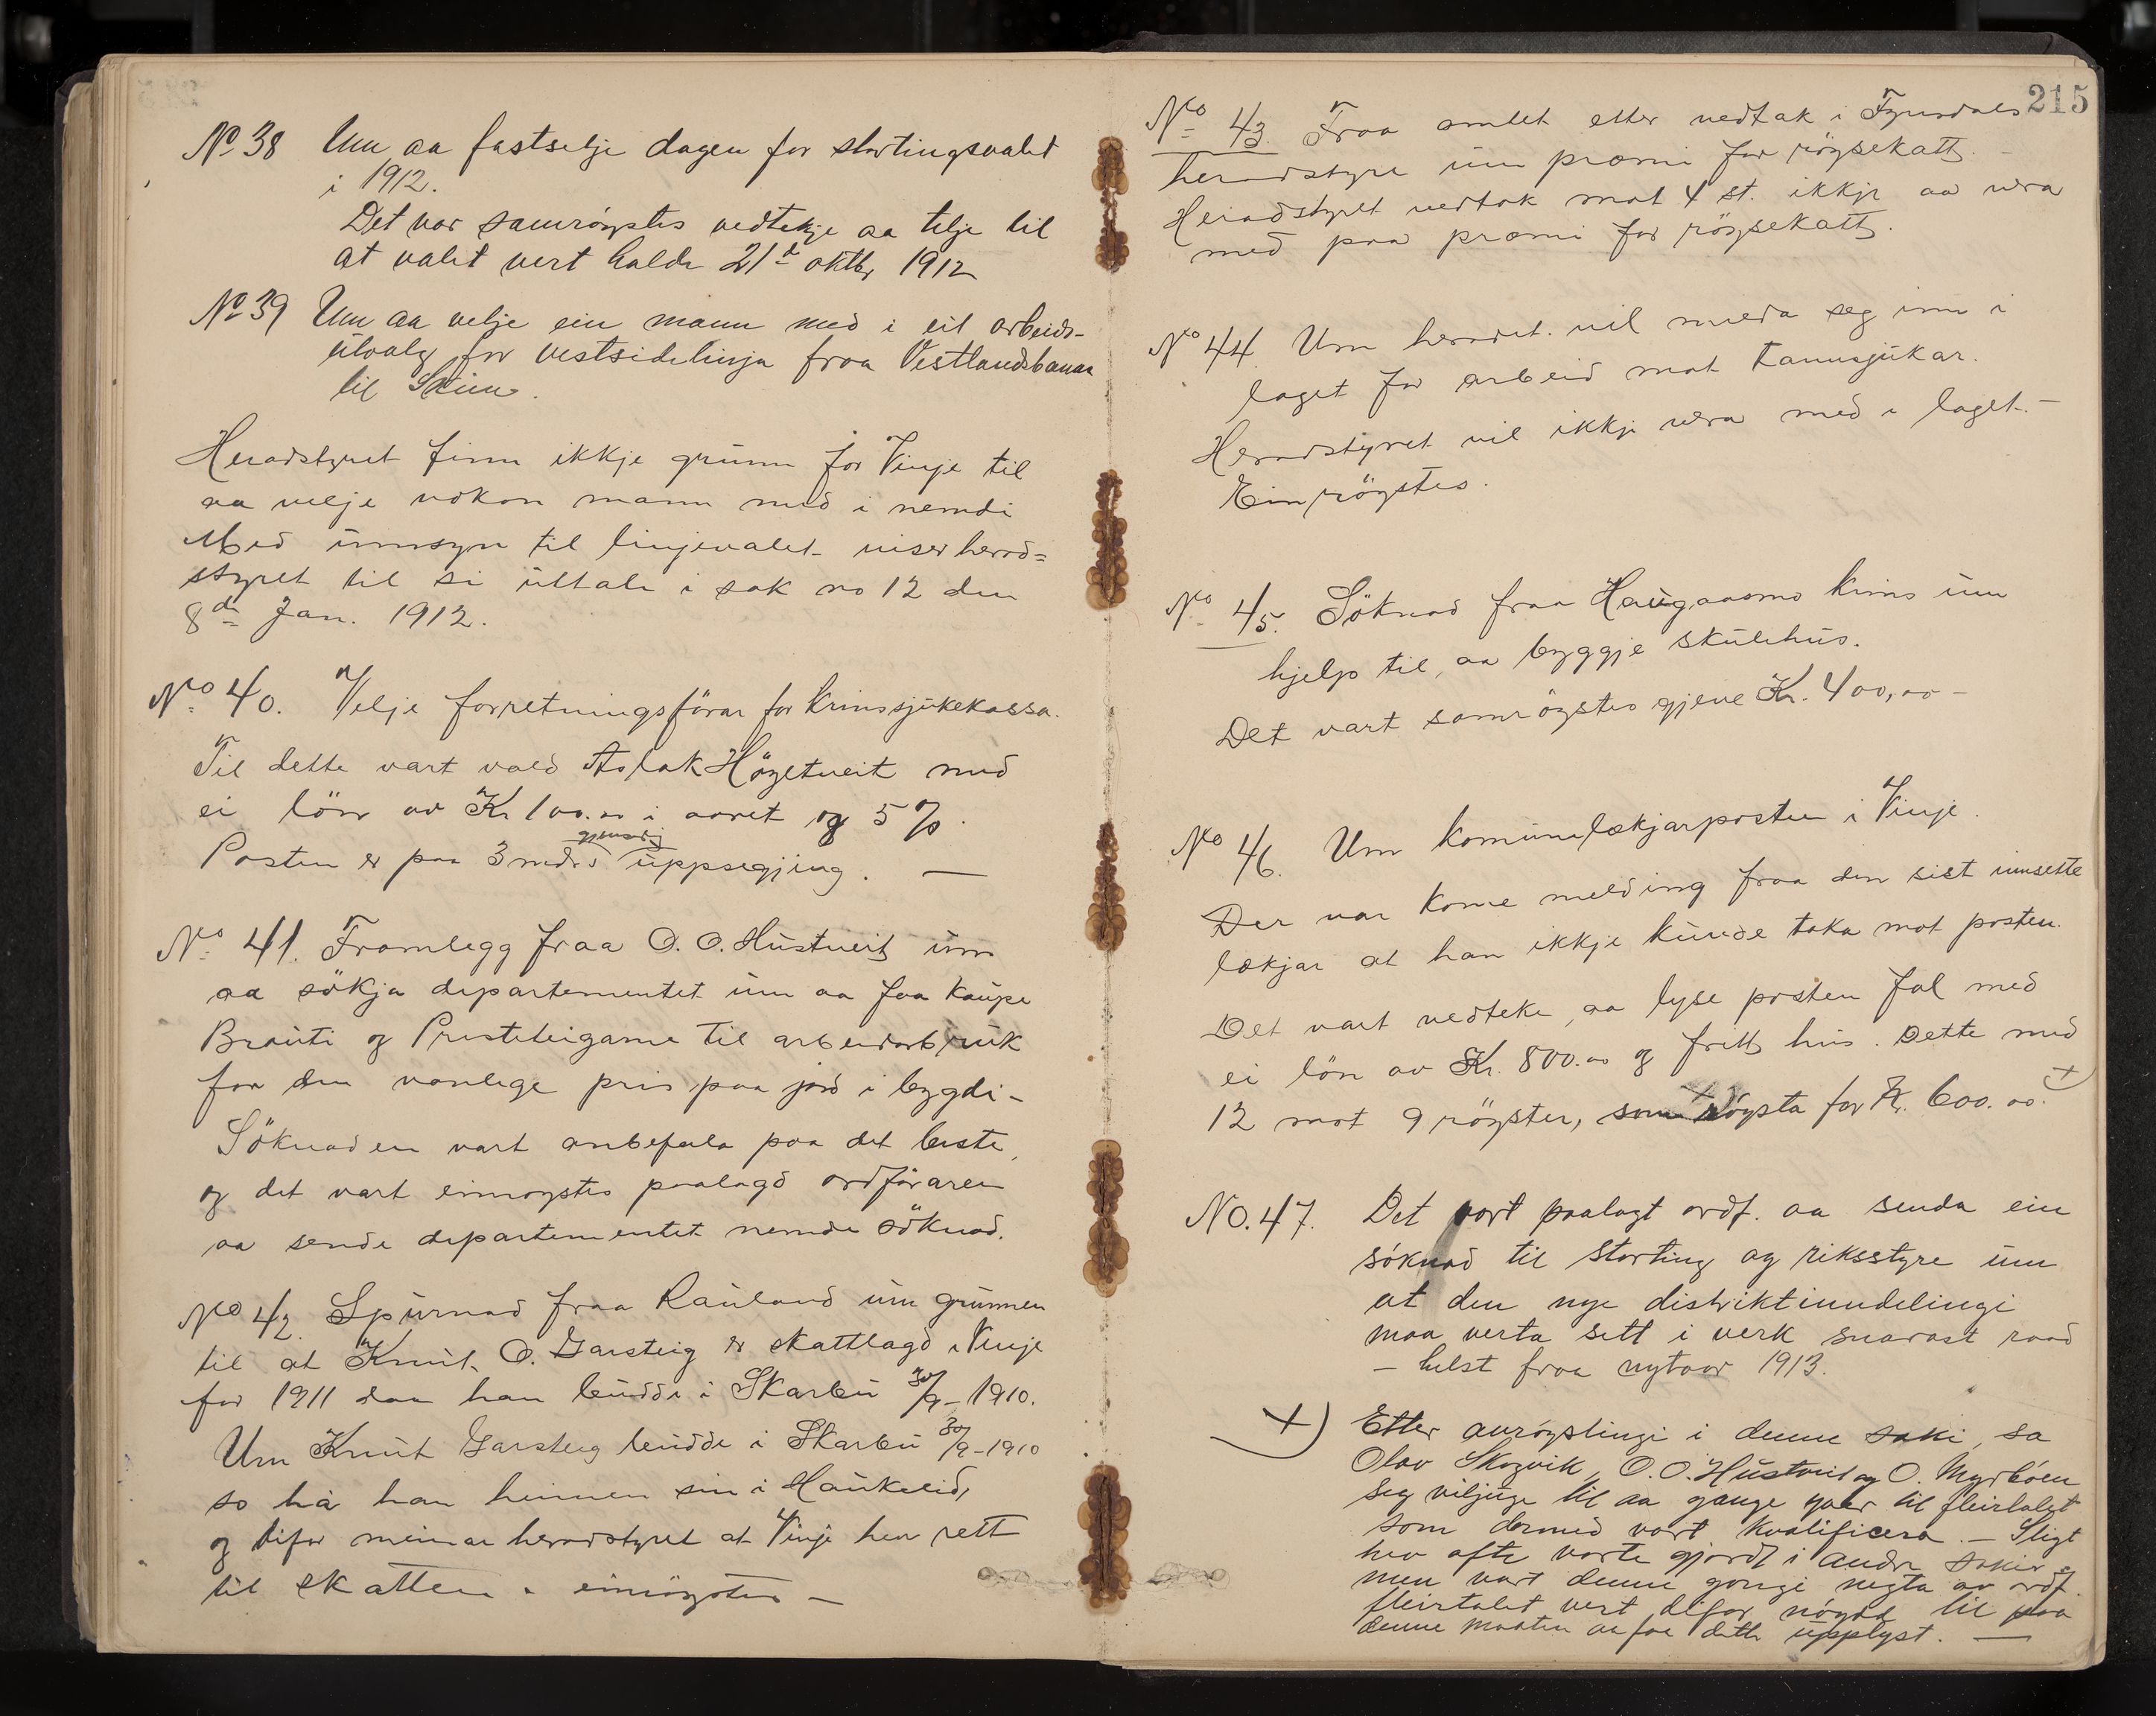 No 38 Um aa fastselje dagen for stortingsvalet
i 1912.
Det var samröystes vedtekje aa telje til
at valet vert halde 21de oktbr 1912
No 39 Um aa velje ein mann med i eit arbeids-
utvalg for vestsidelinja fraa Vestlandsbanen
til Skien.
Heradstyret finn ikkje grunn for Vinje til
aa velje nokon mann med i nemdi
Med umsyn til linjevalet viser herad=
styret til si uttale i sak no 12 den
8de Jan. 1912.
No 40. Velje forretningsförar for Krinssjukekassa.
Til dette vart vald Aslak Högetveit med
ei lön av Kr 100.00 i aaret og 5 %.
Posten er paa 3 mdrs gjensidig uppsegjing. —
No 41. Framlegg fraa O. O. Hustveit um
aa sökja departementet um aa faa kaupe
Brauti og Presteteigane til arbeidarbruk
for den vanlege pris paa jord i bygdi -
Söknaden vart anbefala paa det beste,
og det vart einröystes paalagd ordföraren
aa sende departementet nemde söknad.
No 42. Spurnad fraa Rauland um grunnen
til at Knut O. Garsteig er skattlagd i Vinje
for 1911 daa han budde i Skarbu 30/9 - 1910.
Um Knut Garsteig budde i Skarbu 30/9 - 1910
so ha han heimen sin i Haukelid,
og difor meinar heradstyret at Vinje hev rett
til skatten. einröystes —
215
No 43. Fraa amtet etter vedtak i Fyresdals
heradstyre um præmi for röysekatt. -
Heradstyret vedtok mot 4 st. ikkje aa vera
med paa præmi for röysekatt.
No 44. Um heradet vil melda seg inn i
laget for arbeid mot tannsjukar.
Heradstyret vil ikkje vera med i laget. -
Einröystes.
No 45. Söknad fraa Haugaasmo krins um
hjelp til, aa byggje skulehus.
Det vart samröystes gjeve Kr. 400,00 -
No 46. Um komunelækjarposten i Vinje.
Der var kome melding fraa den sist innsette
lækjar at han ikkje kunde taka mot posten.
Det vart vedteke, aa lyse posten fal med
ei lön av Kr. 800.00 og fritt hus. Dette med
12 mot 9 röyster, som röysta for Kr. 600.00. +)
No. 47. Det vart paalagt ordf. aa senda ein
söknad til storting og riksstyre um
at den nye distriktinndelingi
maa verta sett i verk snarast raad
- helst fraa nytaar 1913.
+) Etter avröystingi i denne saki, sa
Olav Skogvik, O. O. Hustveit og O. Myrböen
seg viljuge til aa gange yver til fleirtalet
som dermed vart kvalificera. - Sligt
hev ofte vorte gjordt i andre saker
men vart denne gongi negta av ordf.
fleirtalet vert difor nöydd til paa
denne maaten aa faa dette upplyst. —